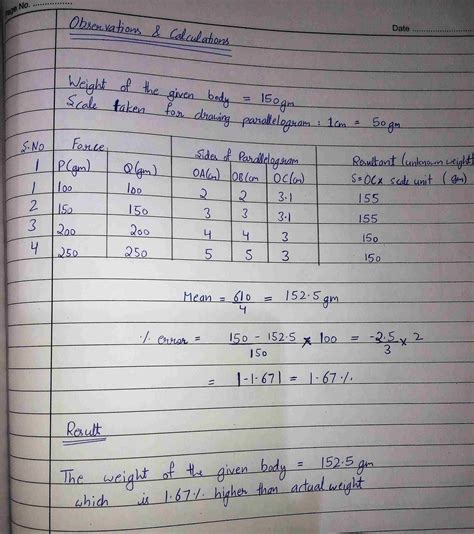 Page No.
Date
Observations & Calculations
Weight of the given body = 150gm
Scale taken for drawing parallelogram : 1cm = 50gm
S.No Force Sides of Parallelogram Resultant (unknown weight)
1 P(gm) Q(gm) OA(cm) OB(cm OC(cm) S=OC× scale unit (gm)
1 100 100 2 2 3.1 155
2 150 150 3 3 3.1 155
3 200 200 4 4 3 150
4 250 250 5 5 3 150
Mean = 610/4 = 152.5 gm
% error = 150 - 152.5/150 × 100 = -2.5/3 × 2
= |-1.67| = 1.67%
Result
The weight of the given body = 152.5 gm
which is 1.67% higher than actual weight